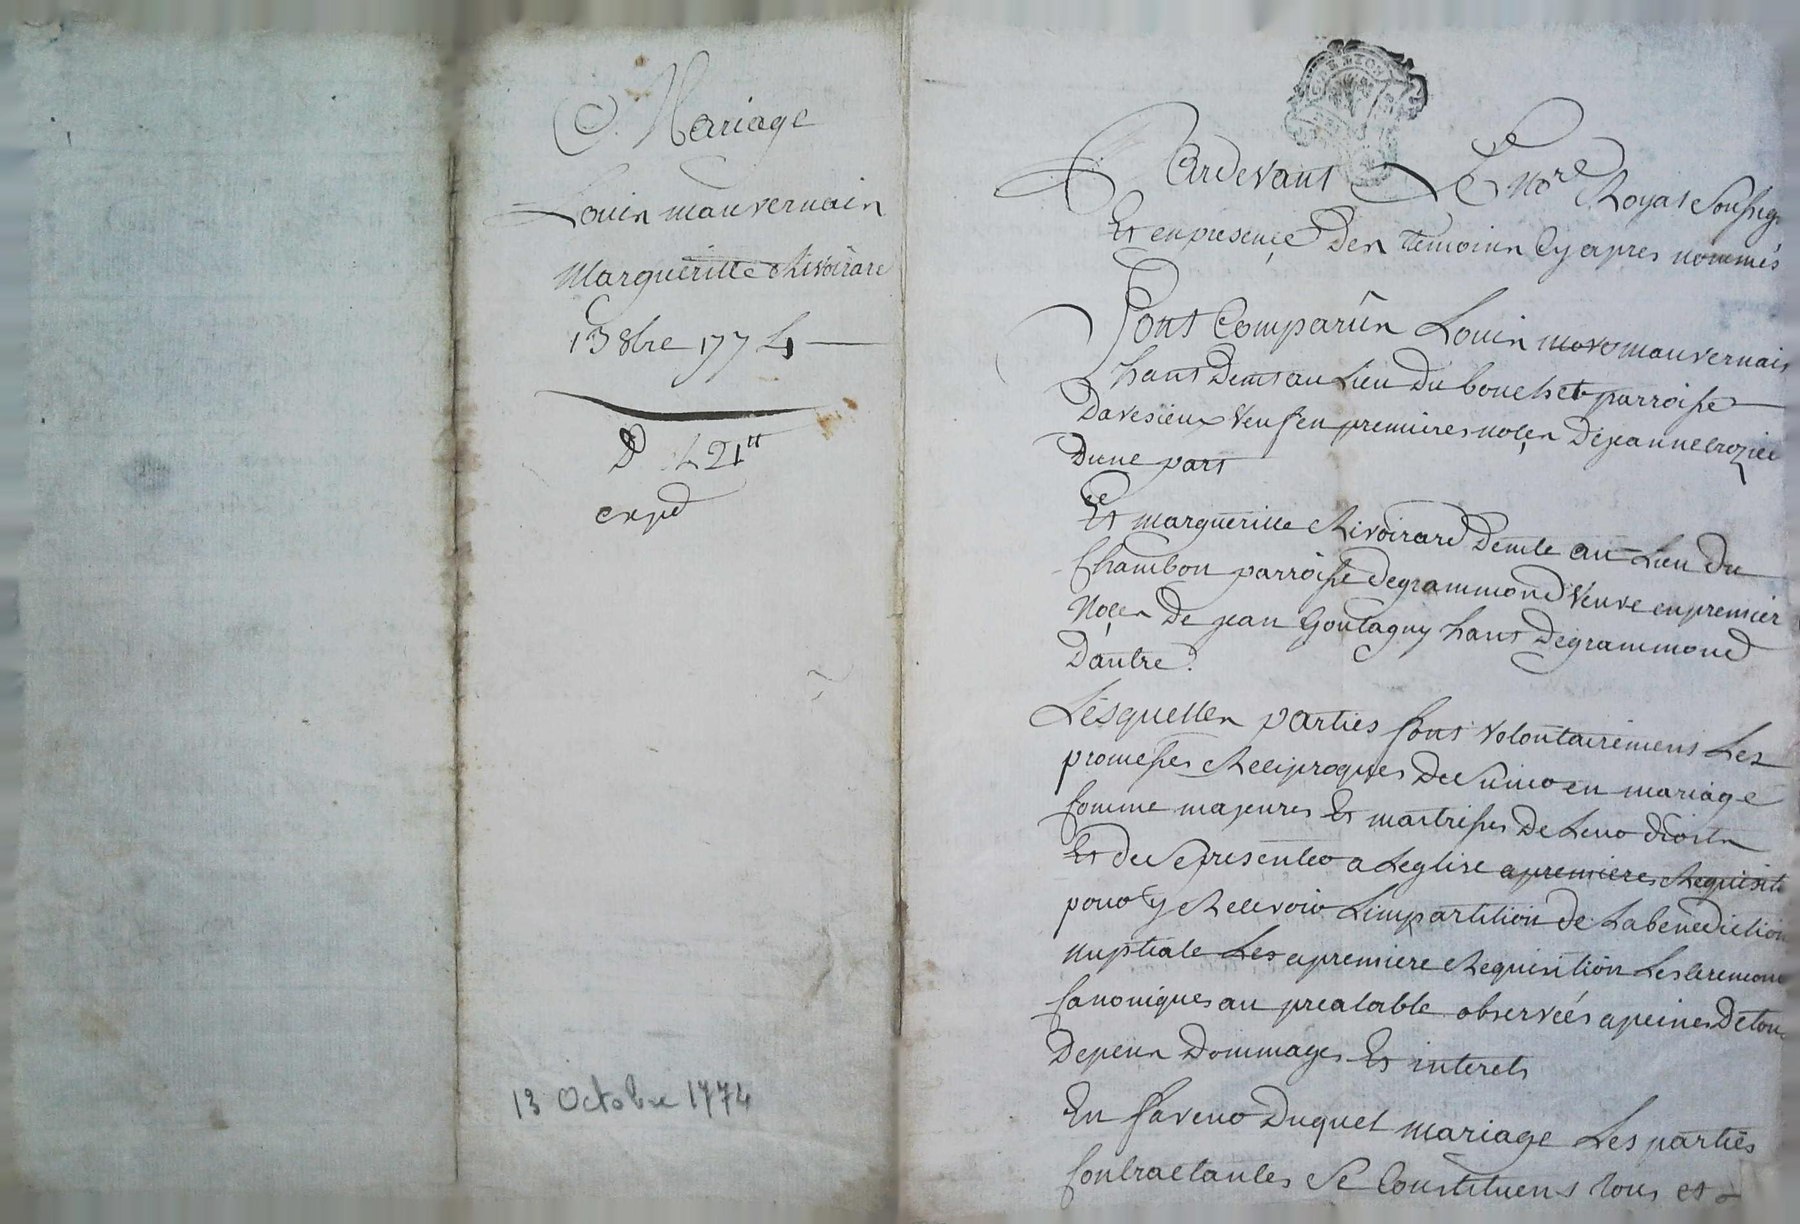 C. Mariage
Louis mauvernais
Margueritte Rivoirard
13 8bre 1774
D 421tt
expd
13 Octobre 1774
Pardevant Le Nore Royal Soussig
Et en presençe Des temoins Cy apres nommés
Sont Comparus Louis mauvernais
hant Demt au Lieu Du bouchet parroisse
Davesieux Veuf en premieres noçes De jeanne crozier
Dune part
Et margueritte Rivoirard Demte au Lieu Du
Chambon parroisse degrammond Veuve en premier
Noçes De jean Goutagny hant Degrammond
Dautre.
Lesquelles parties font volontairement Les
promesses Reciproques De Sunir en mariage
Comme majeures Et maitresses De Leur droits
Et de Se presenter a Leglise a premieres Requisit
pour y Recevoir Limpartition de La benediction
nuptiale Les a premiere Requisition Les Ceremoni
Canoniques au prealable observées a peines De tou
Depens Dommages Et interets
En faveur Duquel mariage Les parties
Contractantes Se Constituent tous et